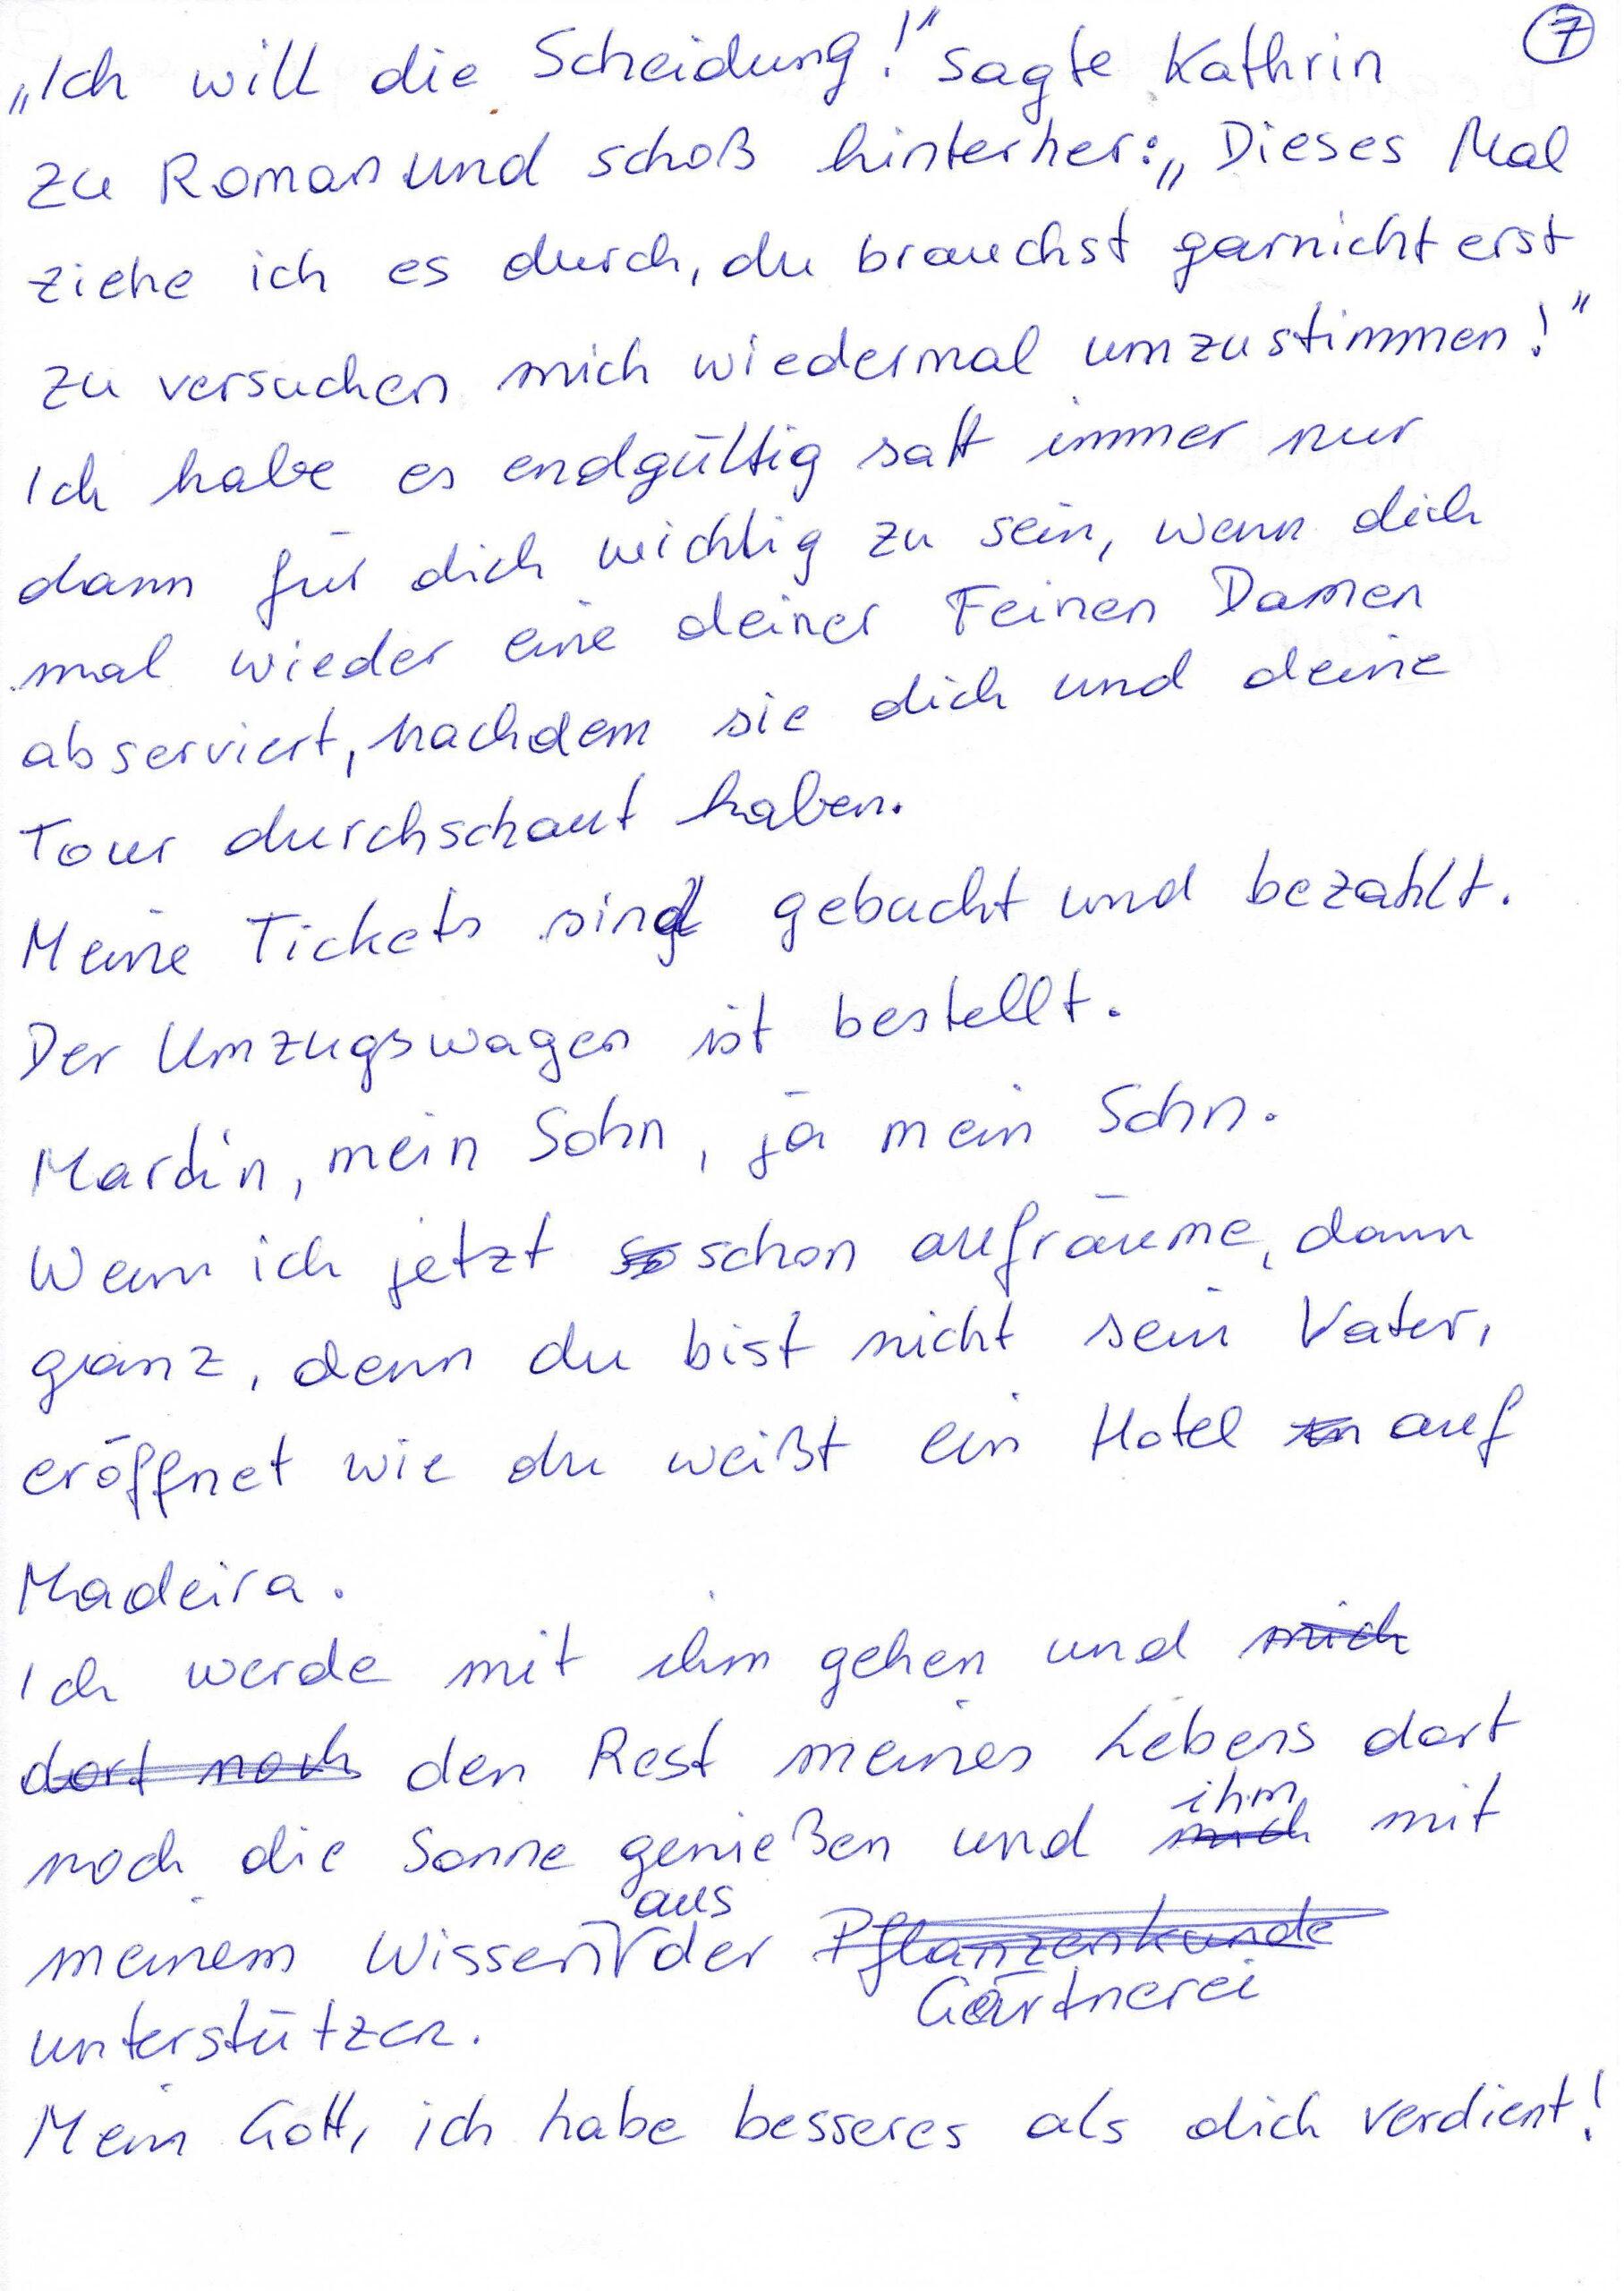 „Ich will die Scheidung!“ sagte Kathrin ⑦
zu Roman und schoß hinterher: „Dieses Mal
ziehe ich es durch, du brauchst garnicht erst
zu versuchen mich wiedermal umzustimmen!“
Ich habe es endgültig satt immer nur
dann für dich wichtig zu sein, wenn dich
mal wieder eine deiner Feinen Damen
abserviert, nachdem sie dich und deine
Tour durchschaut haben.
Meine Tickets sind gebucht und bezahlt.
Der Umzugswagen ist bestellt.
Martin, mein Sohn, ja mein Sohn.
Wenn ich jetzt so schon aufräume, dann
ganz, denn du bist nicht sein Vater,
eröffnet wie du weißt ein Hotel in auf
Madeira.
Ich werde mit ihm gehen und mich
dort noch den Rest meines Lebens dort
ihm
noch die Sonne genießen und mich mit
aus
meinem Wissen der Pflanzenkunde
Gärtnerei
unterstützen.
Mein Gott, ich habe besseres als dich verdient!